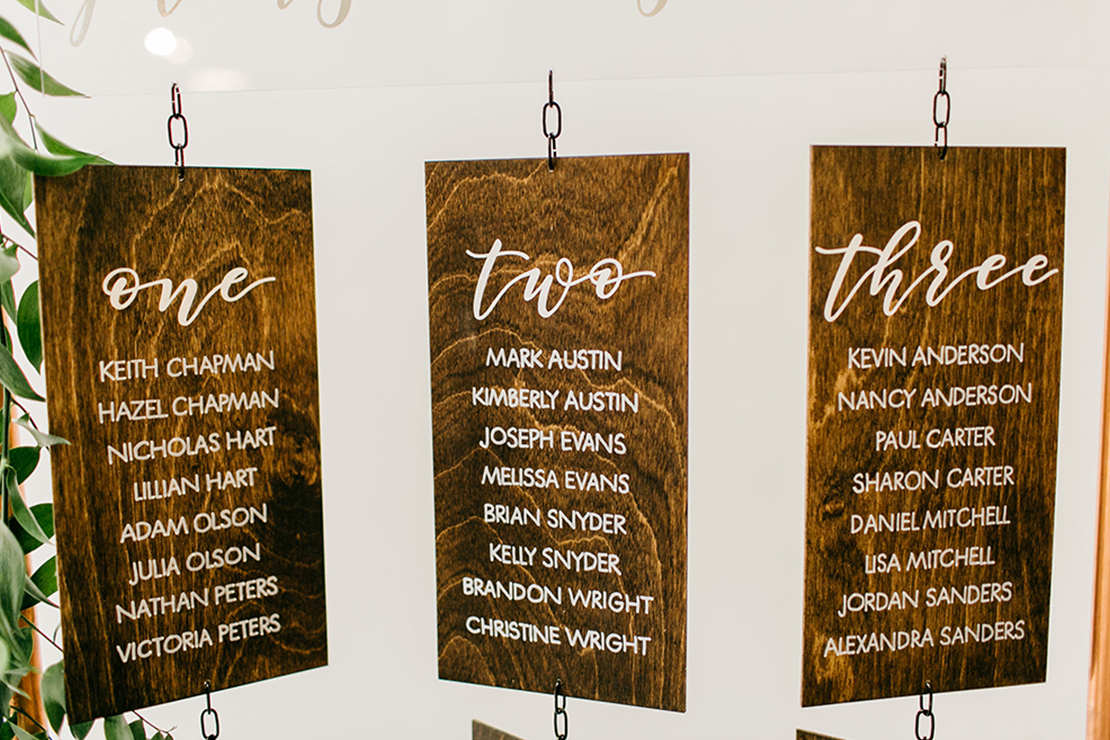 one
KEITH CHAPMAN
HAZEL CHAPMAN
NICHOLAS HART
LILLIAN HART
ADAM OLSON
JULIA OLSON
NATHAN PETERS
VICTORIA PETERS
two
MARK AUSTIN
KIMBERLY AUSTIN
JOSEPH EVANS
MELISSA EVANS
BRIAN SNYDER
KELLY SNYDER
BRANDON WRIGHT
CHRISTINE WRIGHT
three
KEVIN ANDERSON
NANCY ANDERSON
PAUL CARTER
SHARON CARTER
DANIEL MITCHELL
LISA MITCHELL
JORDAN SANDERS
ALEXANDRA SANDERS